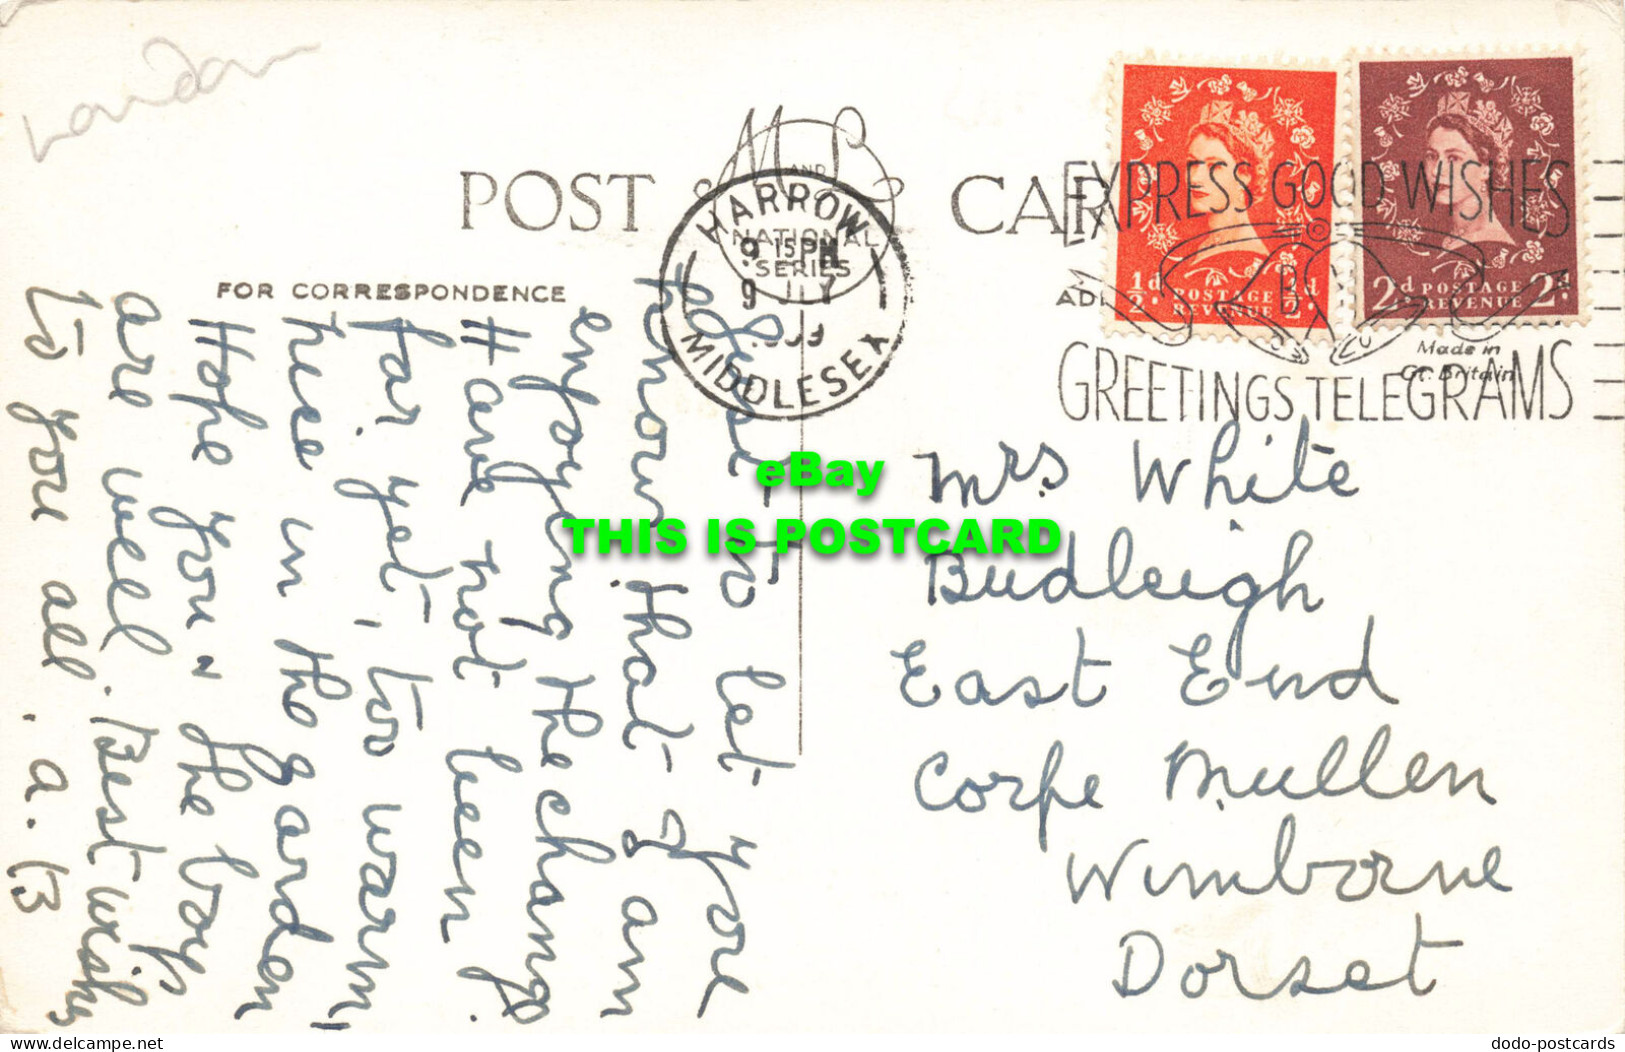 London
POST CARD
M AND L
NATIONAL
SERIES
HARROW
9 15 PM
9 JLY
MIDDLESEX
EXPRESS GOOD WISHES
GREETINGS TELEGRAMS
½d. POSTAGE REVENUE ½d.
2½d POSTAGE REVENUE 2½d
Made in
Gt. Britain
FOR CORRESPONDENCE
to let you
know that I am
enjoying the change.
Have not been
far yet, too warm,
here in the garden
Hope you & the boys
are well. Best wishes
to you all. A. B
Mrs White
Budleigh
East End
Corfe Mullen
Wimborne
Dorset
eBay
THIS IS POSTCARD
www.delcampe.net
dodo-postcards